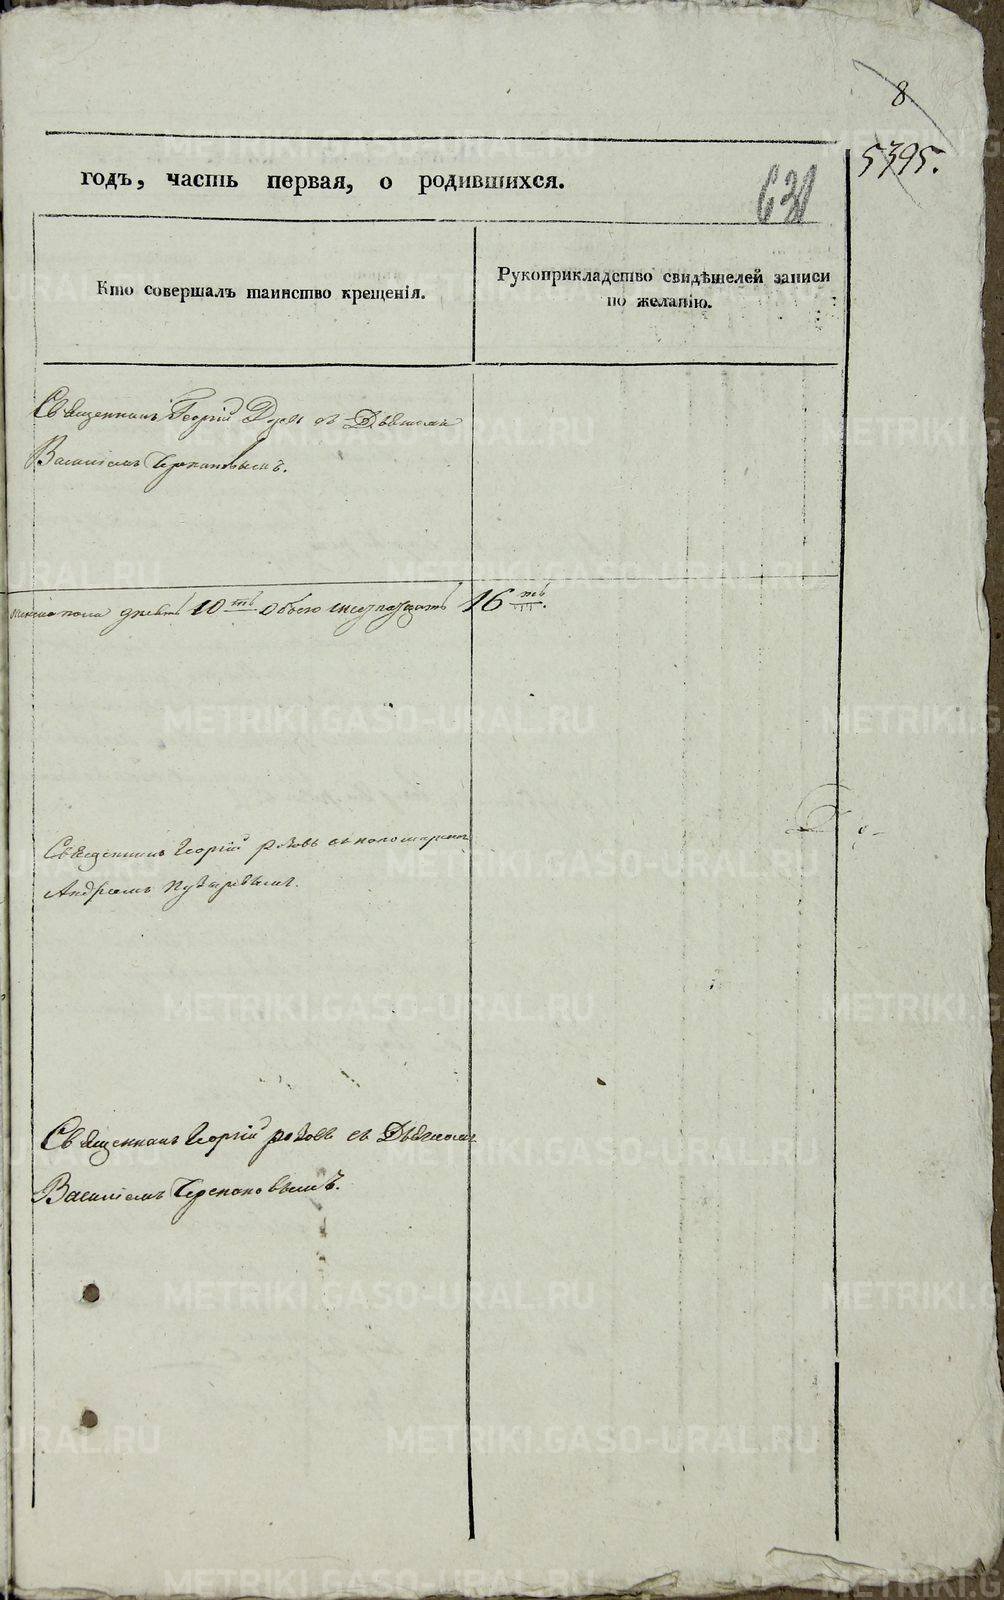 8
5395.
годъ, часть первая, о родившихся.
631
Кто совершалъ таинство крещенія.
Рукоприкладство свидѣтелей записи
по желанію.
Священникъ Георгій съ Дьячкомъ
Василіемъ Черпановымъ.
женска пола девять 10 обоего шестнадцать 16
Священникъ Георгій съ пономаремъ
Андреемъ Пузыревымъ.
Священникъ Георгій съ Дьячкомъ
Василіемъ Черпановымъ.
METRIKI.GASO-URAL.RU